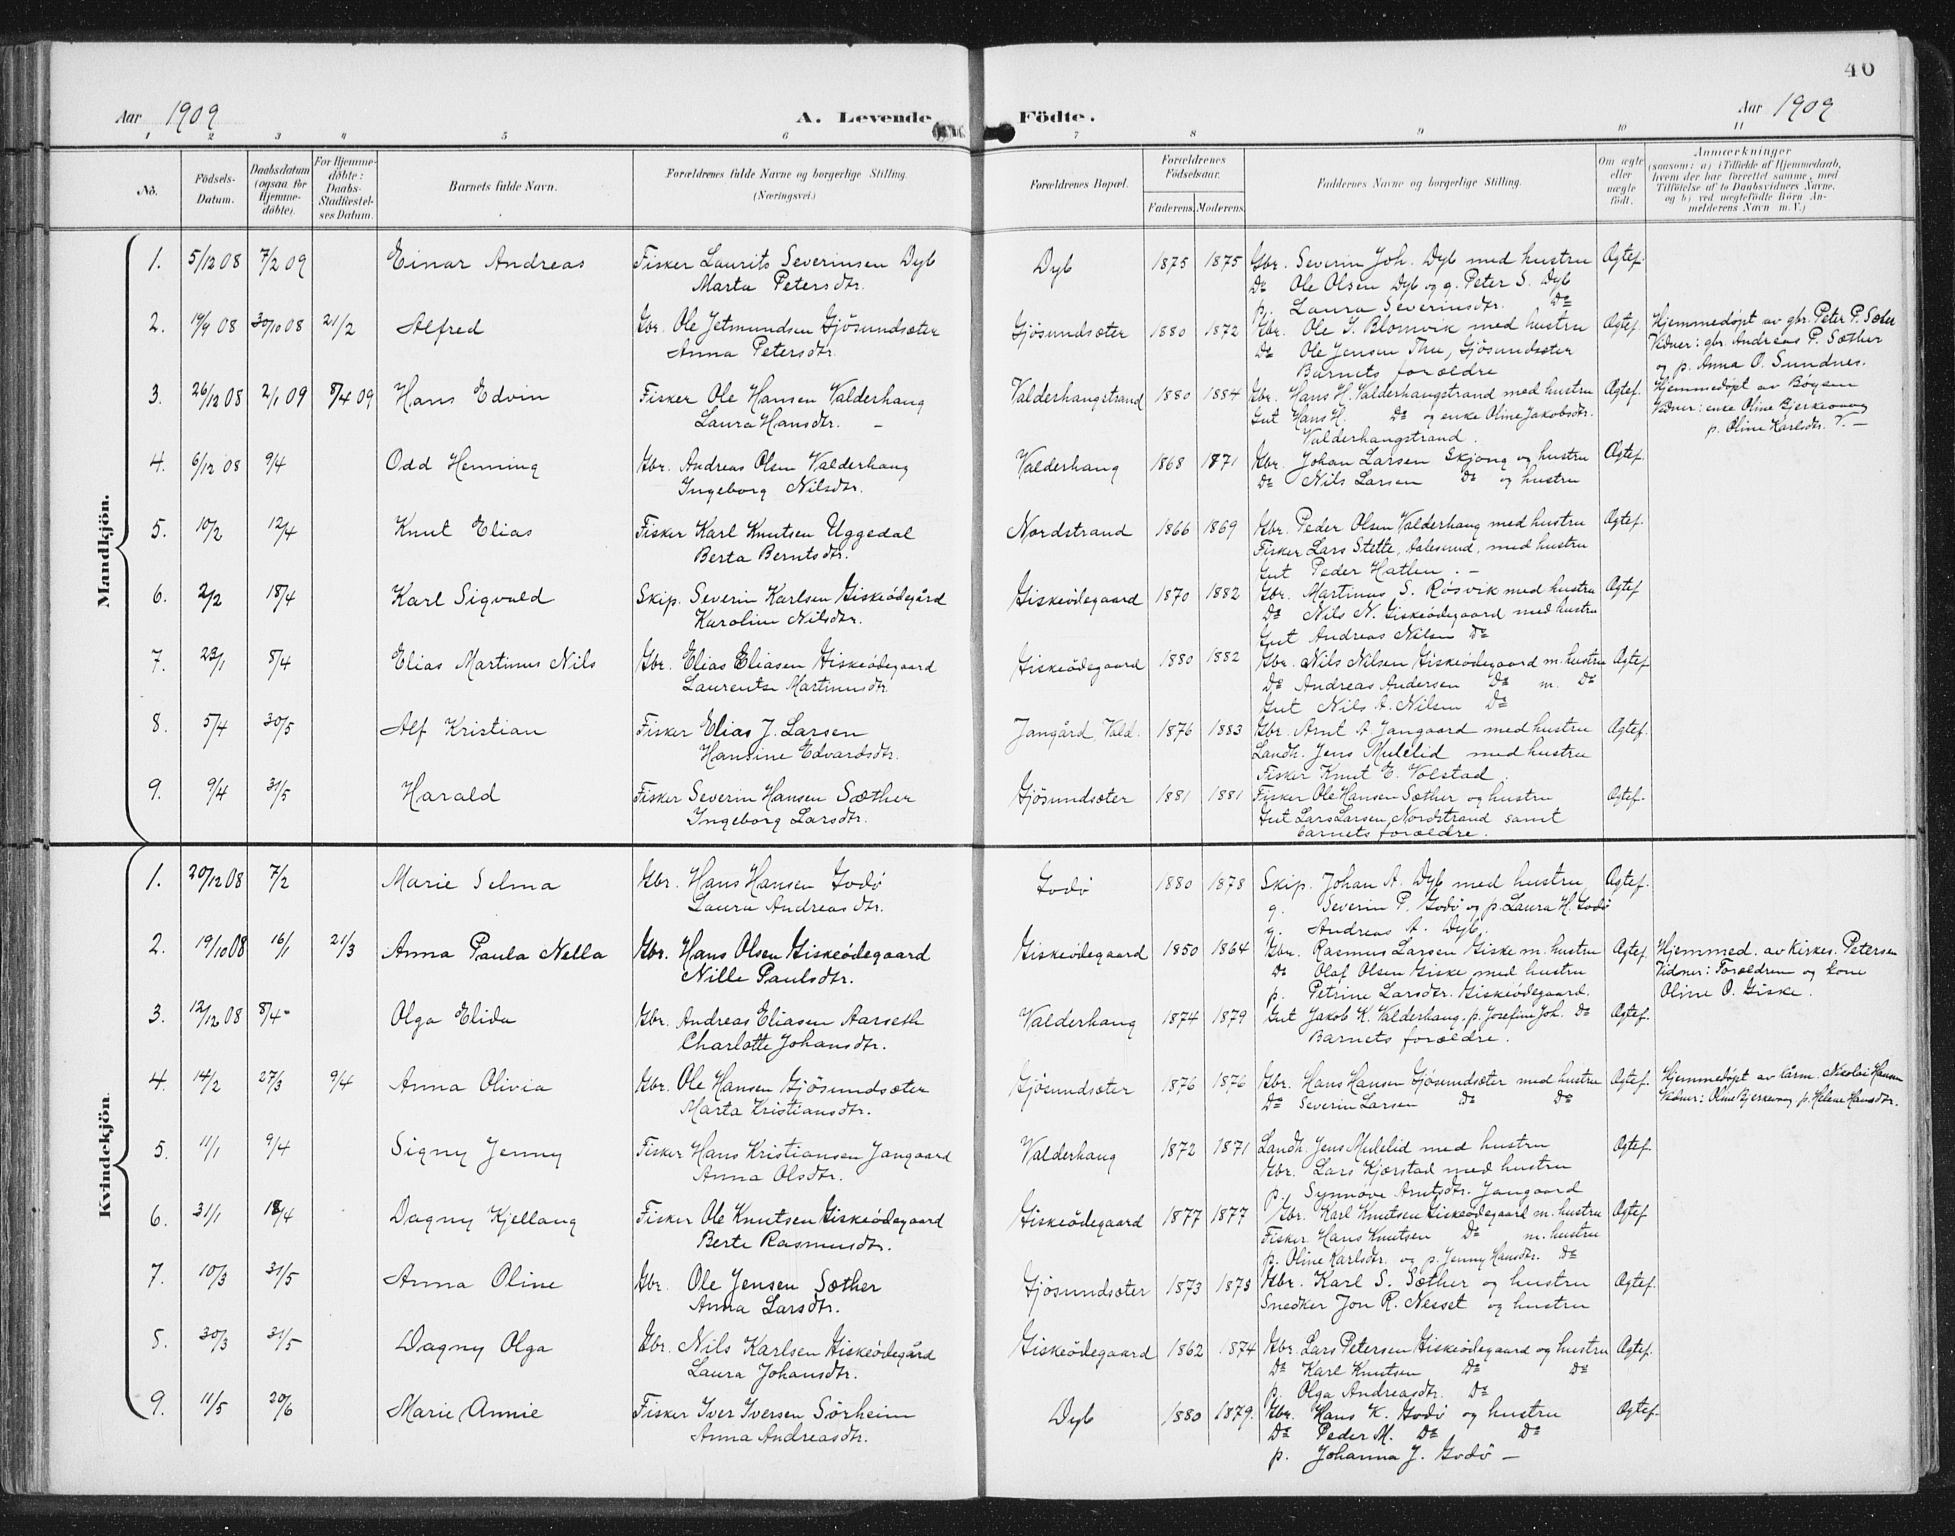 40
Aar 1909 A. Levende Födte. Aar 1909
1 2 3 4 5 6 7 8 9 10 11
No. Födsels-Datum. Daabsdatum (ogsaa for Hjemme-döbte). For Hjemme-döbte: Daabs-Stadfæstel-ses Datum. Barnets fulde Navn. Forældrenes fulde Navne og borgerlige Stilling. (Næringsvei.) Forældrenes Bopæl. Forældrenes Födselsaar. Faderens. Moderens. Faddernes Navne og borgerlige Stilling. Om ægte eller uægte födt. Anmærkninger (saasom: a) i Tilfælde af Hjemmedaab, hvem der har forrettet samme, med Tilföielse af to Daabsvidners Navne, og b) ved uægtefödte Börn An-melderens Navn m. V.)
Mandkjön.
1. 5/12 08 7/2 09 Einar Andreas Fisker Laurits Severinsen Dyb Dyb 1875 1875 Gbr. Severin Joh. Dyb med hustru Ægtef.
Marta Petersdtr. Do Ole Olsen Dyb og g. Peter S. Dyb
p. Laura Severinsdtr. Do
2. 19/9 08 30/10 08 21/2 Alfred Gbr. Ole Jetmundsen Gjösundsæter Gjösundsæter 1880 1872 Gbr. Ole J. Blomvik med hustru Ægtef. Hjemmedøpt av gbr. Peter P. Sæter
Anna Petersdtr. Do Ole Jensen Thu, Gjösundsæter Vidner: gbr. Andreas P. Sæther
Barnets forældre og p. Anna O. Sundnes.
3. 26/12 08 2/1 09 8/4 09 Hans Edvin Fisker Ole Hansen Valderhaug Valderhaugstrand 1880 1884 Gbr. Hans H. Valderhaugstrand med hustru Ægtef. Hjemmedøpt av Bøgen
Laura Hansdtr. Gut Hans H. Do og enke Oline Jakobsdtr. Vidner: enke Oline Bjerkevaag
Valderhaugstrand. p. Oline Karlsdtr. V. –
4. 6/12 08 9/4 Odd Henning Gbr. Andreas Olsen Valderhaug Valderhaug 1868 1871 Gbr. Johan Larsen Skjong og hustru Ægtef.
Ingeborg Nilsdtr. Do Nils Larsen Do og hustru
5. 10/2 12/4 Knut Elias Fisker Karl Knutsen Uggedal Nordstrand 1866 1869 Gbr. Peder Olsen Valderhaug med hustru Ægtef.
Berta Berntsdtr. Fisker Lars Stette, Aalesund, med hustru
Gut Peder Hatlen. –
6. 2/2 18/4 Karl Sigvald Skip. Severin Karlsen Giskeödegård Giskeödegaard 1870 1882 Gbr. Martinus S. Røsvik med hustru Ægtef
Karoline Nilsdtr. Do Nils N. Giskeödegaard med hustru
Gut Andreas Nilsen Do
7. 23/1 5/4 Elias Martinus Nils Gbr. Elias Eliasen Giskeödegaard Giskeödegaard 1880 1882 Gbr. Nils Nilsen Giskeödegaard m. hustru Ægtef.
Laurentse Martinusdtr. Do Andreas Andersen Do m. Do
Gut Nils A. Nilsen Do
8. 5/4 30/5 Alf Kristian Fisker Elias J. Larsen Jangård, Vald. 1876 1883 Gbr. Arnt A. Jangaard med hustru Ægtef.
Hansine Edvardsdtr. Landh. Jens Mulelid med hustru
Fisker Knut E. Volstad.
9. 9/4 31/5 Harald Fisker Severin Hansen Sæther Gjösundsæter 1881 1881 Fisker Ole Hansen Sæther og hustru Ægtef.
Ingeborg Larsdtr. Gut Lars Larsen, Nordstrand samt
barnets forældre.
Kvindekjön.
1. 20/12 08 7/2 Marie Selma Gbr. Hans Hansen Godö Godö 1880 1878 Skip. Johan A. Dyb med hustru Ægtef.
Laura Andreasdtr. g. Severin P. Godö og p. Laura H. Godö
g. Andreas A. Dyb.
2. 19/10 08 16/1 21/3 Anna Paula Nella Gbr. Hans Olsen Giskeödegaard Giskeödegaard 1850 1864 Gbr. Rasmus Larsen Giske m. hustru Ægtef. Hjemmed. av Kirkes. Petersen
Nille Paulsdtr. Do Olaf Olsen Giske med hustru Vidner: Forældren og kone
p. Petrine Larsdtr. Giskeödegaard. Oline O. Giske.
3. 12/12 08 8/4 Olga Elida Gbr. Andreas Eliasen Aarseth Valderhaug 1874 1879 Gut Jakob K. Valderhaug, p. Josefine Joh. Do Ægtef.
Charlotte Johansdtr. Barnets forældre.
4. 14/2 27/3 9/4 Anna Olivia Gbr. Ole Hansen Gjösundsæter Gjösundsæter 1876 1876 Gbr. Hans Hansen Gjösundsæter med hustru Ægtef. Hjemmedøpt av Nikolai Hansen
Marta Kristiansdtr. Do Severin Larsen Do Do Vidner: Oline Bjerkevaag p. Helene Hansdtr.
5. 11/1 9/4 Signy Jenny Fisker Hans Kristiansen Jangaard Valderhaug 1872 1871 Landh. Jens Mulelid med hustru Ægtef.
Anna Olsdtr. Gbr. Lars Kjærstad med hustru
p. Synnöve Arntsdtr. Jangaard
6. 31/1 18/4 Dagny Kjellaug Fisker Ole Knutsen Giskeödegaard Giskeödegaard 1877 1877 Gbr. Karl Knutsen Giskeödegaard m. hustru Ægtef
Berte Rasmusdtr. Fisker Hans Knutsen Do m. hustru
p. Oline Karlsdtr. og p. Jenny Hansdtr. Do
7. 10/3 31/5 Anna Oline Gbr. Ole Jensen Sæther Gjösundsæter 1873 1873 Gbr. Karl S. Sæther og hustru Ægtef.
Anna Larsdtr. Snedker Jon R. Nesset og hustru
8. 30/3 31/5 Dagny Olga Gbr. Nils Karlsen Giskeödegård Giskeödegaard 1862 1874 Gbr. Lars Petersen Giskeödegaard og hustru Ægtef.
Laura Johansdtr. Do Karl Knutsen Do Do
p. Olga Andreasdtr. Do
9. 11/5 20/6 Marie Annie Fisker Iver Iversen Sörheim Dyb 1880 1879. Gbr. Hans K. Godö og hustru Ægtef.
Anna Andreasdtr. Do Peder M. Do Do
p. Johanna J. Godö –